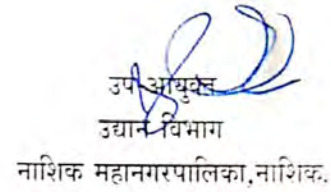 उप-आयुक्त
उद्यान विभाग
नाशिक महानगरपालिका,नाशिक.